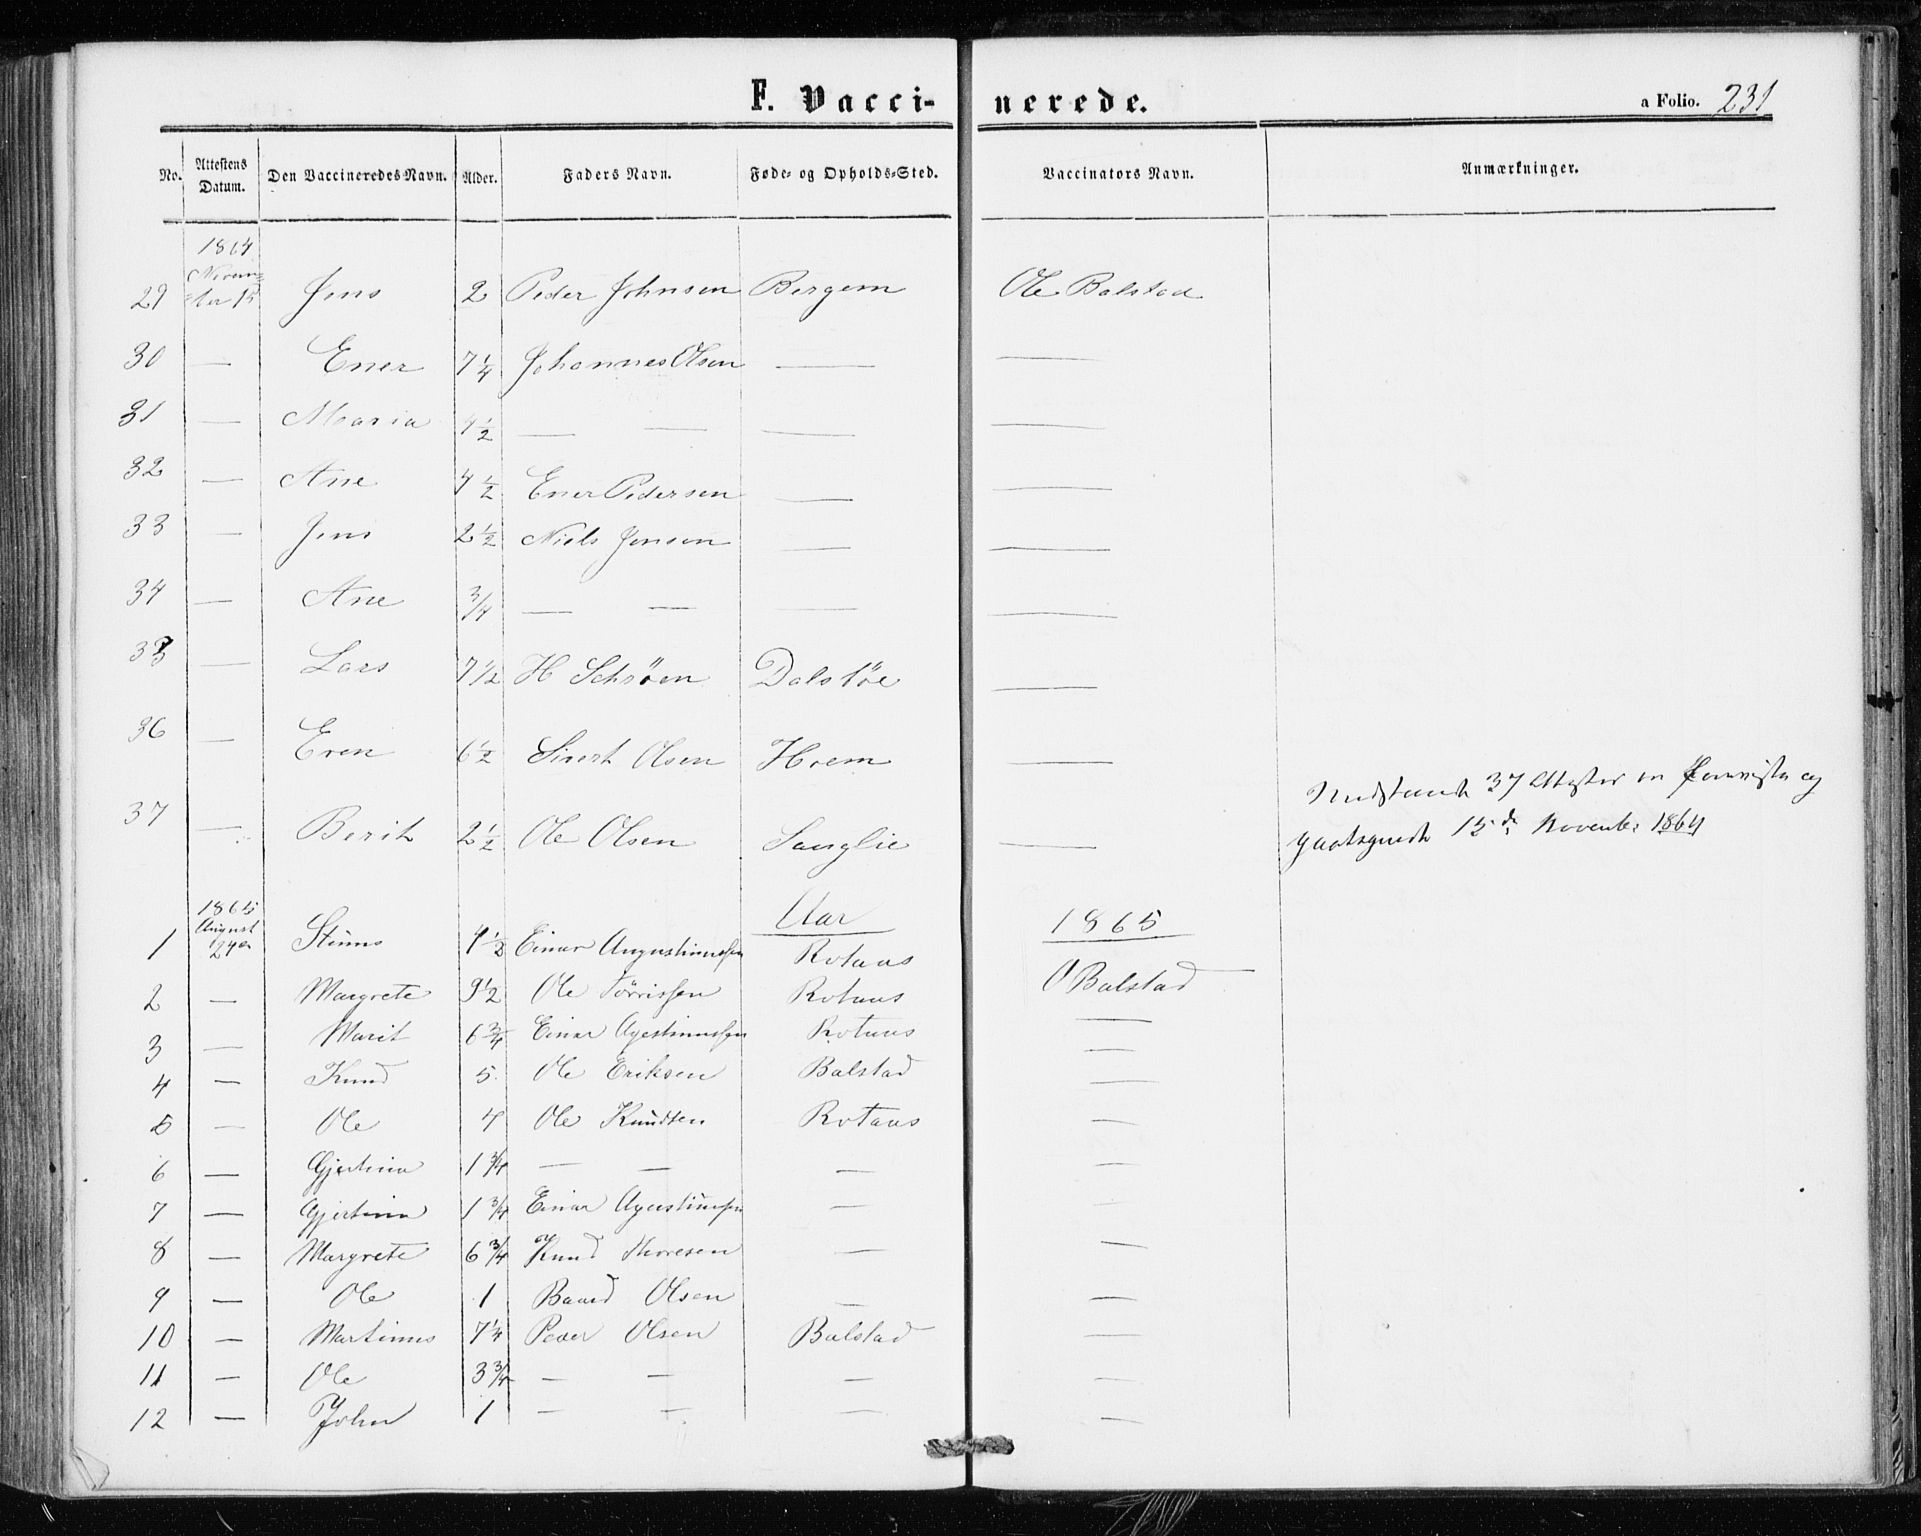 F. Vacci- nerede. a Folio. 231
No. Attestens Datum. Den Vaccineredes Navn. Alder. Faders Navn. Føde- og Opholds-Sted. Vaccinators Navn. Anmærkninger.
1864
Novem=
29 ber 15 Jens 2 Peder Johnsen Bergem Ole Balstad
30 — Ener 7 1/4 Johannes Olsen — —
31 — Maria 4 1/2 — — — —
32 — Ane 4 1/2 Ener Pedersen — —
33 — Jens 2 1/2 Niels Jensen — —
34 — Ane 3/4 — — — —
35 — Lars 7 1/2 H Schrøen Dalsløe —
36 — Eren 6 1/2 Sivert Olsen Hrem —
37 — Berit 2 1/2 Ole Olsen Sanglie — 37 Attester
15de November 1864
1865 Aar 1865
August
1 24de 4 1/2 Einar Augustinussen Rotaas O Balstad
2 — Margrete 9 1/2 Ole Tørrissen Rotaas —
3 — Marit 6 3/4 Einar Agustinussen Rotaas —
4 — Knud 5 Ole Eriksen Balstad —
5 — Ole 4 Ole Knudsen Rotaas —
6 — Gjertina 1 3/4 — — — —
7 — Gjertina 1 3/4 Einar Agustinussen — —
8 — Margrete 6 3/4 Knud Thoresen — —
9 — Ole 1 Baard Olsen — —
10 — Martinus 7 1/4 Peder Olsen Balstad —
11 — Ole 3 3/4 — — — —
12 — John 1 — — — —